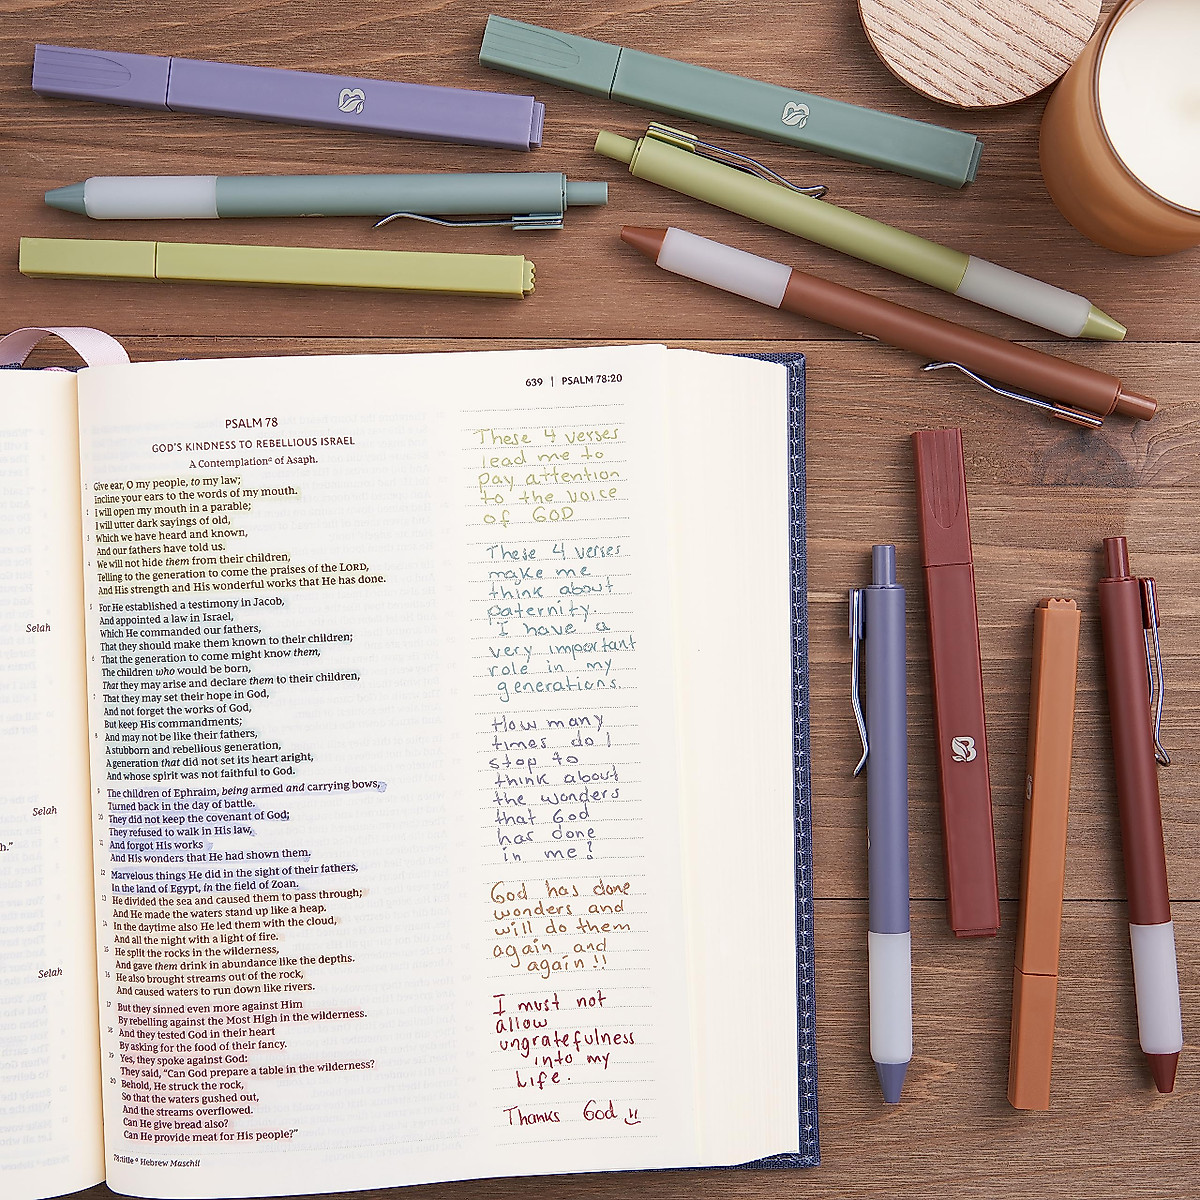 639 | PSALM 78:20
PSALM 78
GOD'S KINDNESS TO REBELLIOUS ISRAEL
A Contemplationª of Asaph.
1 Give ear, O my people, to my law;
Incline your ears to the words of my mouth.
2 I will open my mouth in a parable;
I will utter dark sayings of old,
3 Which we have heard and known,
And our fathers have told us.
4 We will not hide them from their children,
Telling to the generation to come the praises of the LORD,
And His strength and His wonderful works that He has done.
5 For He established a testimony in Jacob,
And appointed a law in Israel,
Which He commanded our fathers,
That they should make them known to their children;
6 That the generation to come might know them,
The children who would be born,
That they may arise and declare them to their children,
7 That they may set their hope in God,
And not forget the works of God,
But keep His commandments;
8 And may not be like their fathers,
A stubborn and rebellious generation,
A generation that did not set its heart aright,
And whose spirit was not faithful to God.
9 The children of Ephraim, being armed and carrying bows,
Turned back in the day of battle.
10 They did not keep the covenant of God;
They refused to walk in His law,
11 And forgot His works
And His wonders that He had shown them.
12 Marvelous things He did in the sight of their fathers,
In the land of Egypt, in the field of Zoan.
13 He divided the sea and caused them to pass through;
And He made the waters stand up like a heap.
14 In the daytime also He led them with the cloud,
And all the night with a light of fire.
15 He split the rocks in the wilderness,
And gave them drink in abundance like the depths.
16 He also brought streams out of the rock,
And caused waters to run down like rivers.
17 But they sinned even more against Him
By rebelling against the Most High in the wilderness.
18 And they tested God in their heart
By asking for the food of their fancy.
19 Yes, they spoke against God:
They said, "Can God prepare a table in the wilderness?
20 Behold, He struck the rock,
So that the waters gushed out,
And the streams overflowed.
Can He give bread also?
Can He provide meat for His people?"
78:title ª Hebrew Maschil
These 4 verses
lead me to
pay attention
to the voice
of GOD
These 4 verses
make me
think about
paternity.
I have a
very important
role in my
generations.
How many
times do I
stop to
think about
the wonders
that God
has done
in me?
God has done
wonders and
will do them
again and
again !!
I must not
allow
ungratefulness
into my
Life.
Thanks God
Selah
Selah
h."
Selah